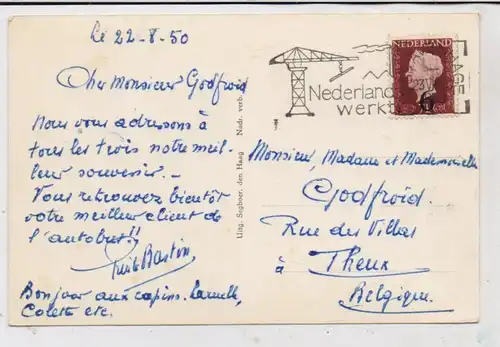 Le 22-8-50
Cher Monsieur Godfroid
Nous vous adressons à
tous les trois notre meil-
leur souvenir.-
Vous retrouvez bientôt
votre meilleur client de
l'autobus!!
Bastin
Bonjour aux copins.
Colette etc.
Uitg. Segboer, den Haag Nadr. verb.
Nederland
werkt
NEDERLAND
6
Monsieur, Madame et Mademoiselle
Godfroid
Rue des Villas
à Theux
Belgique.